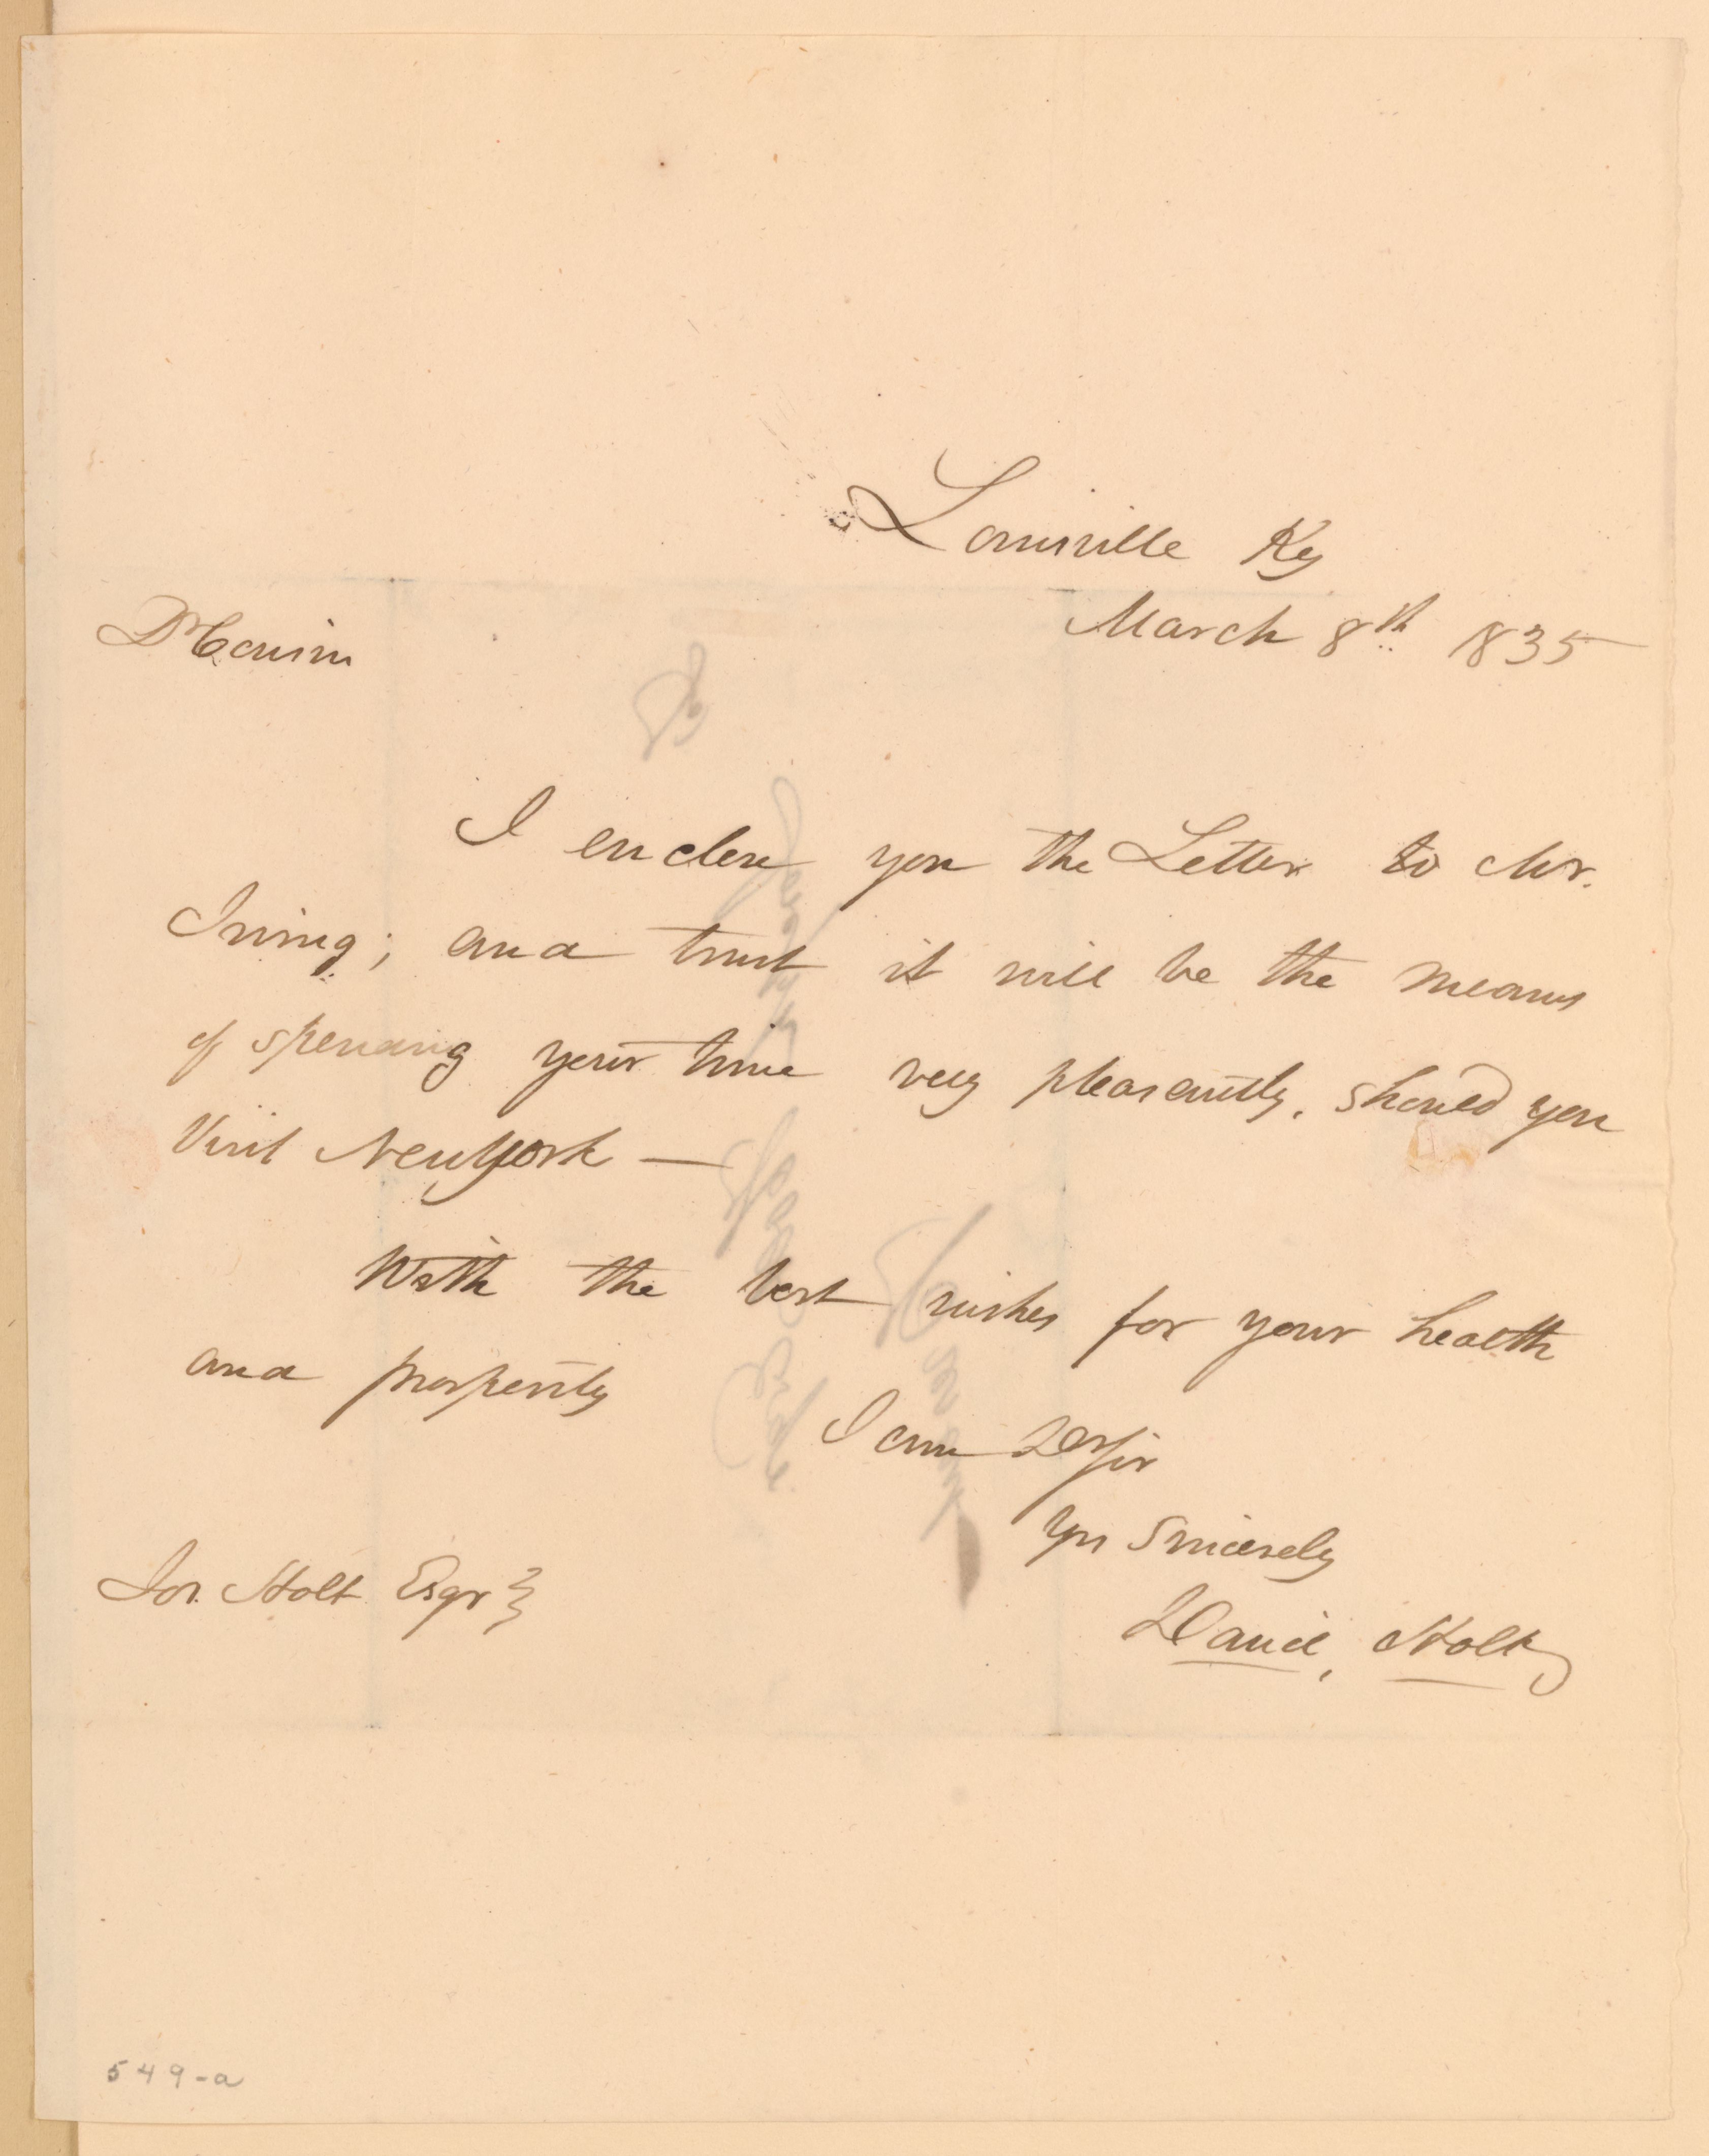 Louisville Ky
March 8th 1835
Dr Cousin
I enclose you the Letter to Mr.
Irving; and trust it will be the means
of spending your time very pleasantly, should you
Visit New York —
With the best wishes for your health
and prosperity
I am Dr Sir
Yrs Sincerely
David Holt
Jos. Holt Esqr
549-a